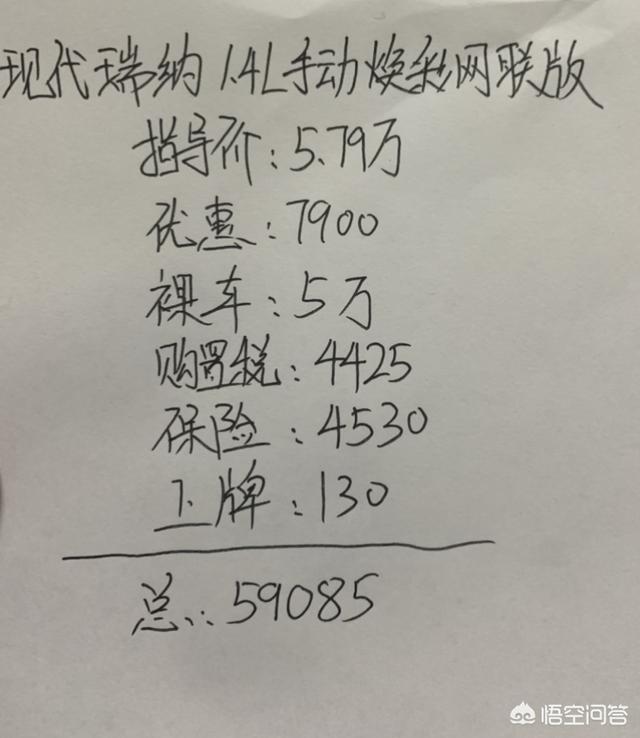 现代瑞纳1.4L手动焕彩网联版
指导价:5.79万
优惠:7900
裸车:5万
购置税:4425
保险:4530
上牌:130
总:59085
悟空问答